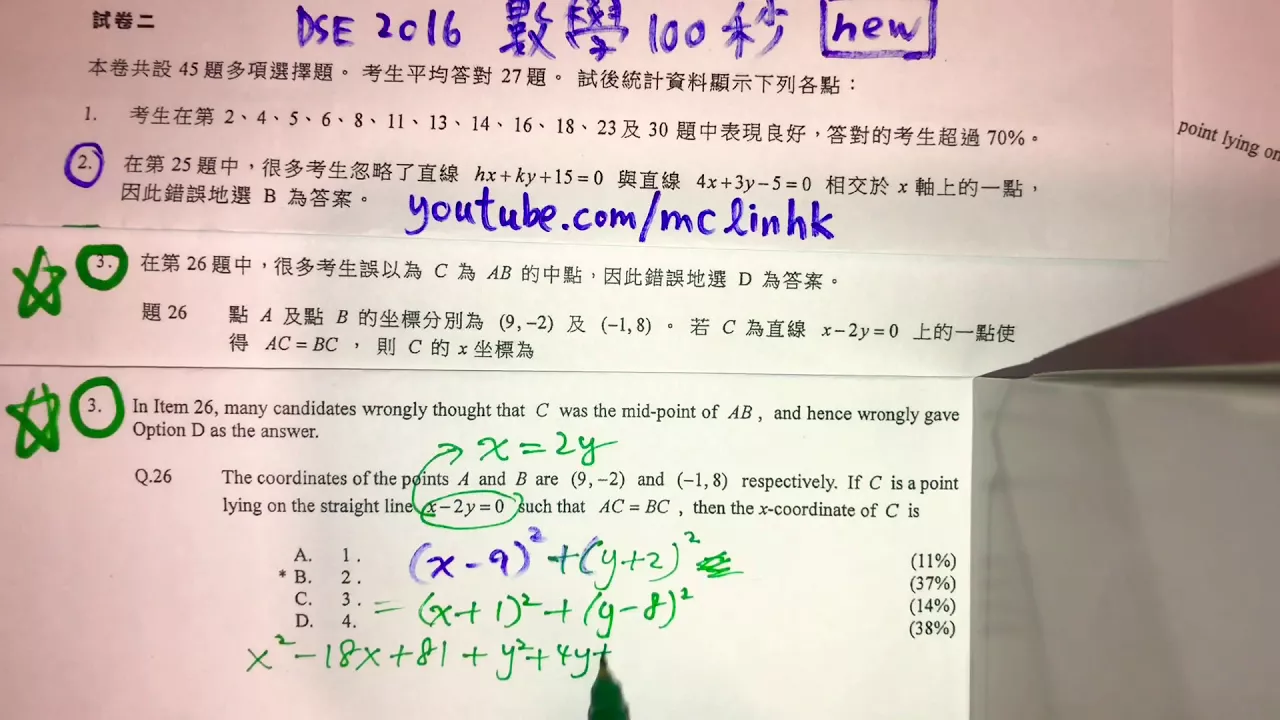 試卷二
DSE 2016 數學 100 秒 new
本卷共設 45 題多項選擇題。考生平均答對 27 題。試後統計資料顯示下列各點：
1. 考生在第 2、4、5、6、8、11、13、14、16、18、23 及 30 題中表現良好，答對的考生超過 70%。
point lying on
2. 在第 25 題中，很多考生忽略了直線 hx+ky+15=0 與直線 4x+3y−5=0 相交於 x 軸上的一點，
因此錯誤地選 B 為答案。
youtube.com/mclinhk
3. 在第 26 題中，很多考生誤以為 C 為 AB 的中點，因此錯誤地選 D 為答案。
題 26 點 A 及點 B 的坐標分別為 (9,−2) 及 (−1,8)。若 C 為直線 x−2y=0 上的一點使
得 AC=BC，則 C 的 x 坐標為
3. In Item 26, many candidates wrongly thought that C was the mid-point of AB, and hence wrongly gave
Option D as the answer.
x = 2y
Q.26 The coordinates of the points A and B are (9,−2) and (−1,8) respectively. If C is a point
lying on the straight line x−2y=0 such that AC=BC, then the x-coordinate of C is
A. 1. (11%)
* B. 2. (37%)
C. 3. (14%)
D. 4. (38%)
(x−9)²+(y+2)²
=(x+1)²+(y−8)²
x²−18x+81+y²+4y+